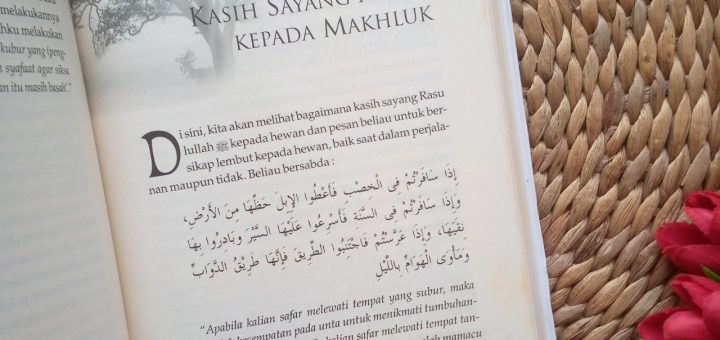 melakukannya
hku melakukan
kubur yang (peng-
syafaat agar siksa
an itu masih basah".
KASIH SAYANG
KEPADA MAKHLUK
Di sini, kita akan melihat bagaimana kasih sayang Rasu
lullah ﷺ kepada hewan dan pesan beliau untuk ber-
sikap lembut kepada hewan, baik saat dalam perjala-
nan maupun tidak. Beliau bersabda :
إِذَا سَافَرْتُمْ فِى الْخِصْبِ فَأَعْطُوا الإِبِلَ حَظَّهَا مِنَ الأَرْضِ،
وَإِذَا سَافَرْتُمْ فِى السَّنَةِ فَأَسْرِعُوا عَلَيْهَا السَّيْرَ وَبَادِرُوا بِهَا
نِقْيَهَا، وَإِذَا عَرَّسْتُمْ فَاجْتَنِبُوا الطَّرِيقَ فَإِنَّهَا طَرِيقُ الدَّوَابِّ
وَمَأْوَى الْهَوَامِّ بِاللَّيْلِ
"Apabila kalian safar melewati tempat yang subur, maka
kesempatan pada unta untuk menikmati tumbuhan-
kalian safar melewati tempat tan-
memacu